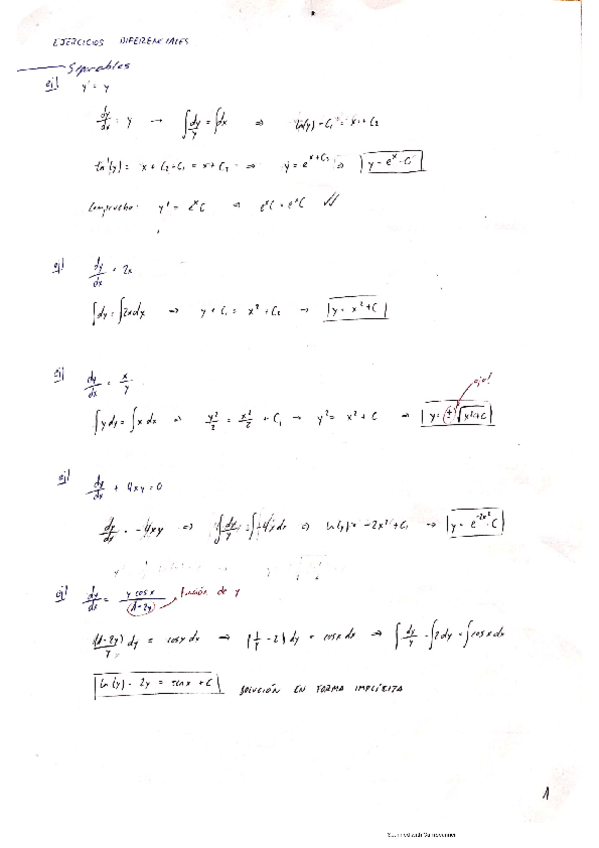 EJERCICIOS DIFERENCIALES
Separables
ej| y' = y
dy/dx = y → ∫dy/y = ∫dx ⇒ ln(y) + C₁ = x + C₂
ln(y) = x + C₂ - C₁ = x + C₃ ⇒ y = e^(x+C₃) ⇒ y = e^x · C
Compruebo: y' = e^x C ⇒ e^x C = e^x C
ej| dy/dx = 2x
∫dy = ∫2xdx ⇒ y + C₁ = x² + C₂ → y = x² + C
ej| dy/dx = x/y
ojo!
∫y dy = ∫x dx ⇒ y²/2 = x²/2 + C₁ → y² = x² + C ⇒ y = ±√(x²+C)
ej| dy/dx + 4xy = 0
dy/dx = -4xy ⇒ ∫dy/y = ∫-4x dx ⇒ ln(y) = -2x² + C₁ → y = e^(-2x²) · C
ej| dy/dx = y cos x/(1-2y) función de y
(1-2y)/y dy = cosx dx ⇒ (1/y - 2) dy = cosx dx ⇒ ∫dy/y - ∫2dy = ∫cosx dx
ln(y) - 2y = senx + C SOLUCIÓN EN FORMA IMPLÍCITA
1